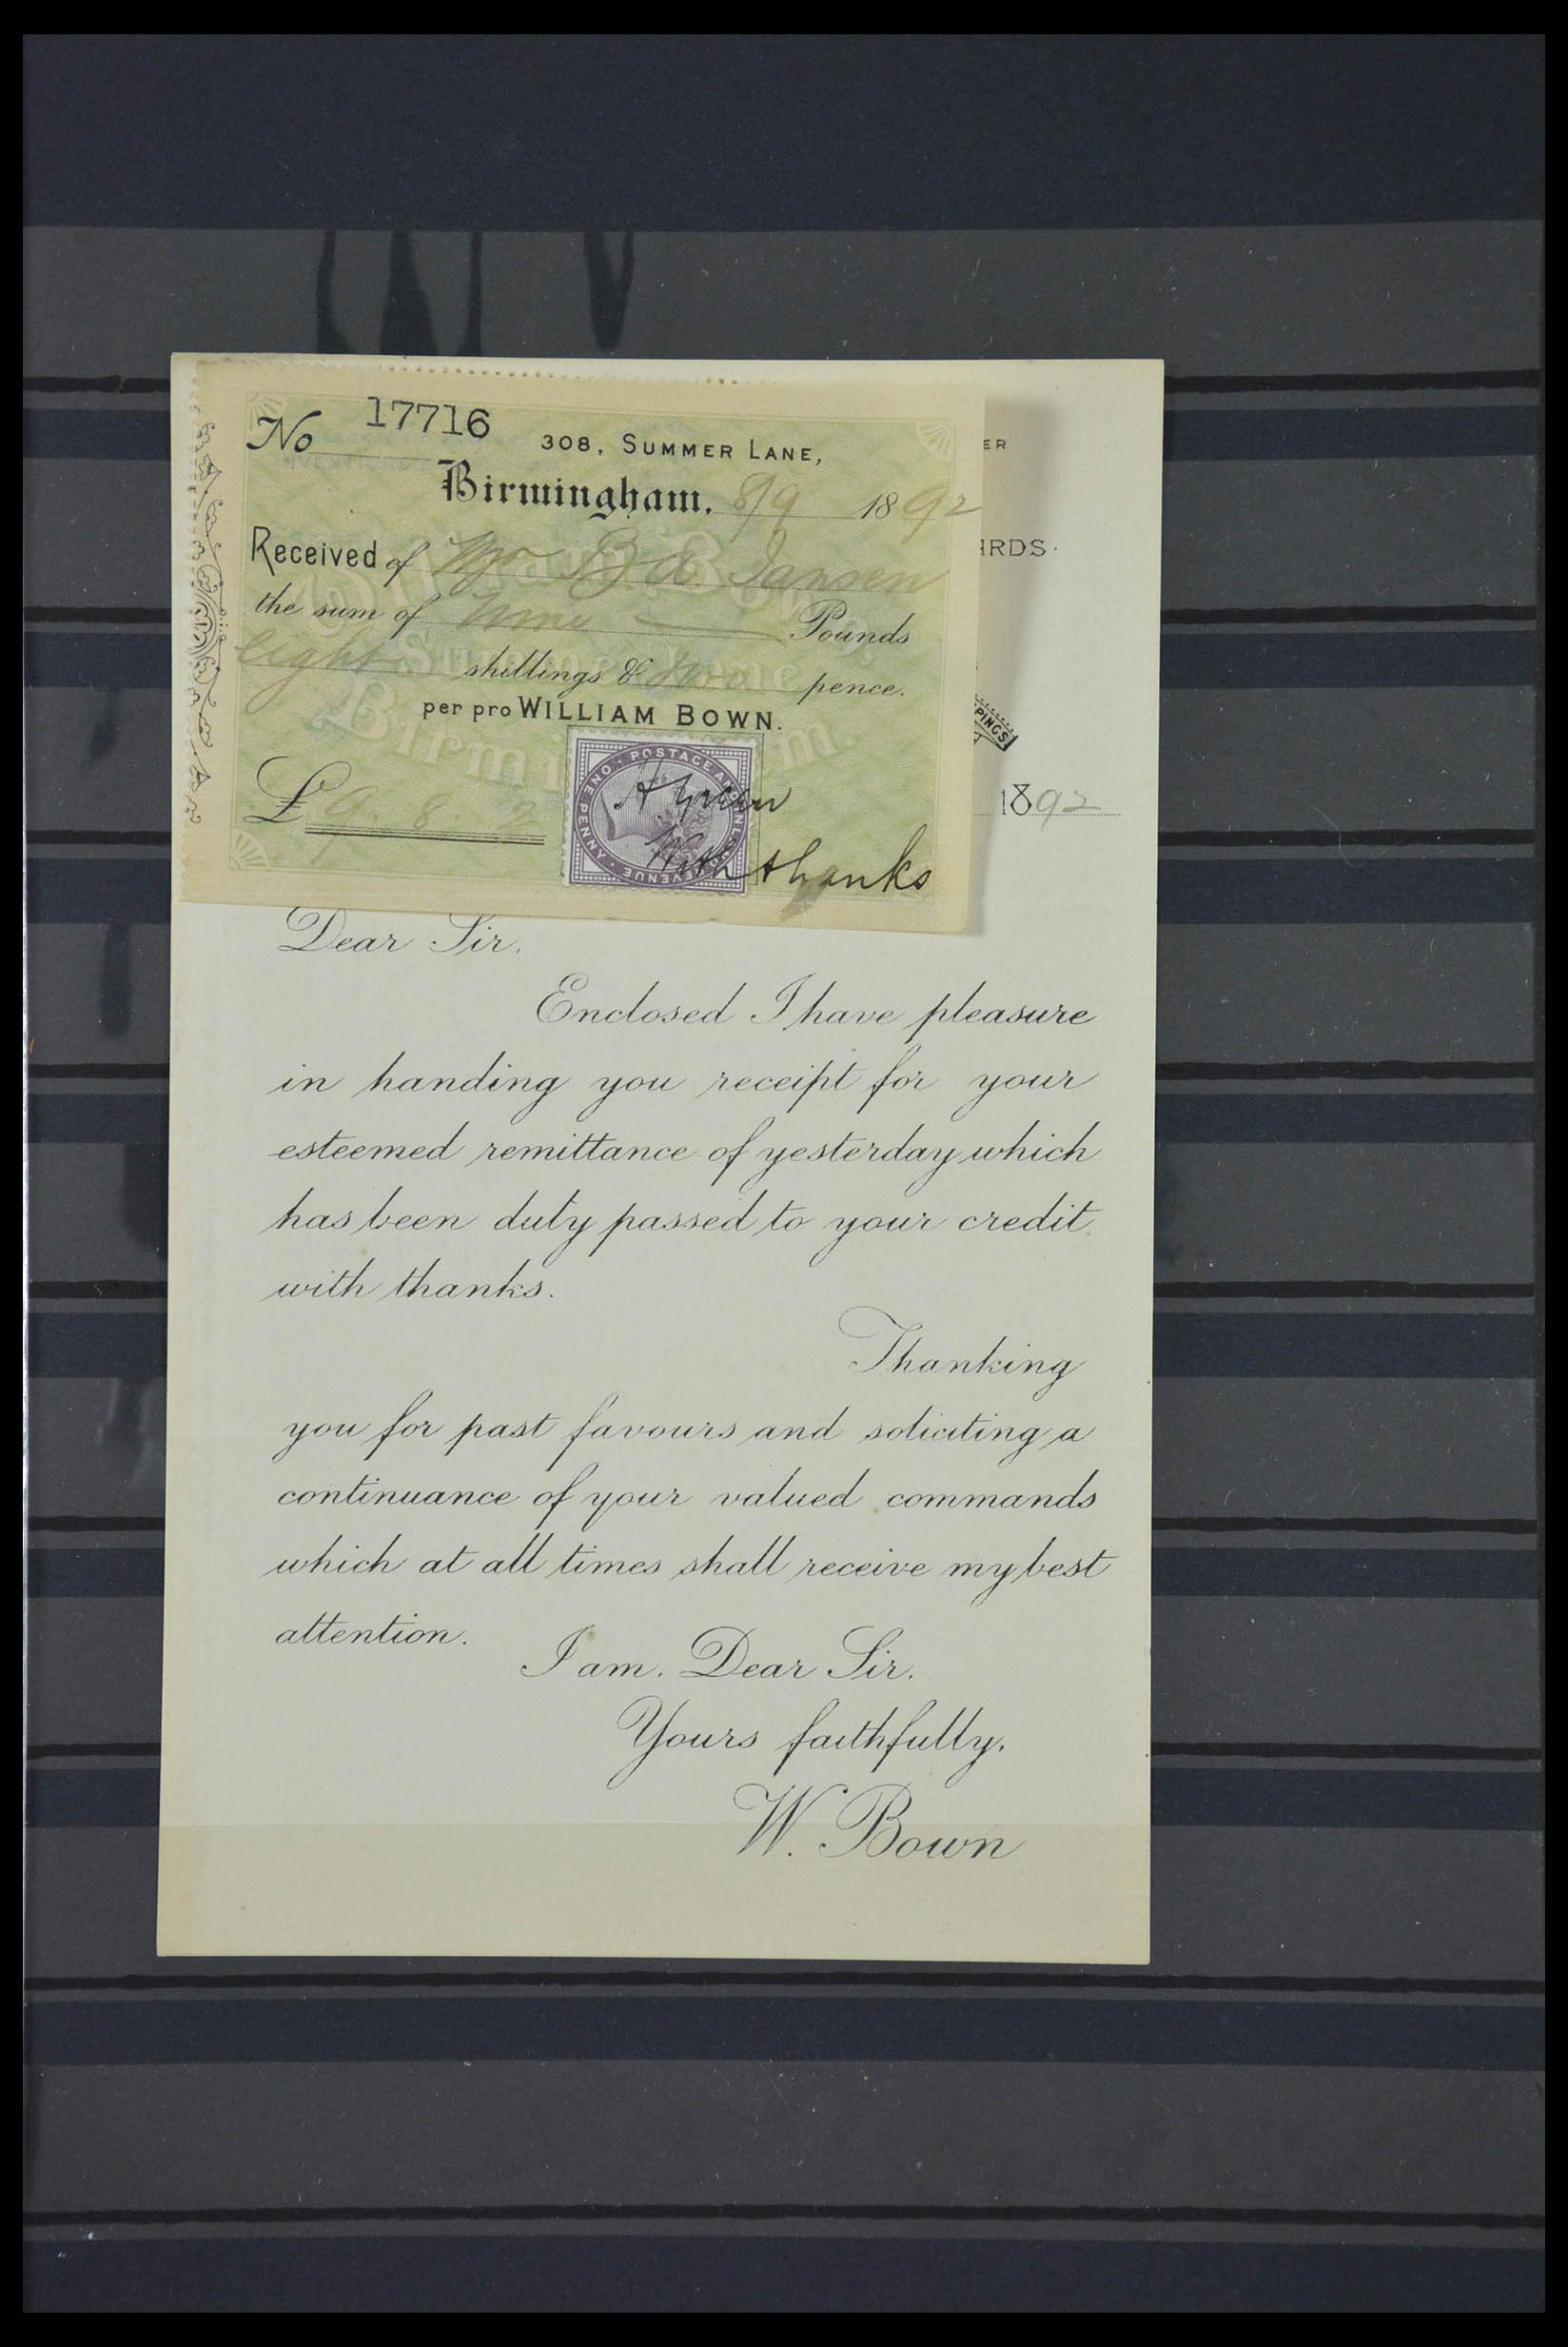 No 17716
308, SUMMER LANE,
Birmingham. 8/9 1892
Received of Mr B A Jansen
the sum of Nine Pounds
Eight shillings & two pence.
per pro WILLIAM BOWN.
£ 9. 8. 2
POSTAGE AND INLAND REVENUE · ONE PENNY ·
A Green
With thanks
ER
ARDS.
PINGS
1892
Dear Sir.
Enclosed I have pleasure
in handing you receipt for your
esteemed remittance of yesterday which
has been duly passed to your credit
with thanks.
Thanking
you for past favours and soliciting a
continuance of your valued commands
which at all times shall receive my best
attention.
I am. Dear Sir.
Yours faithfully.
W. Bown